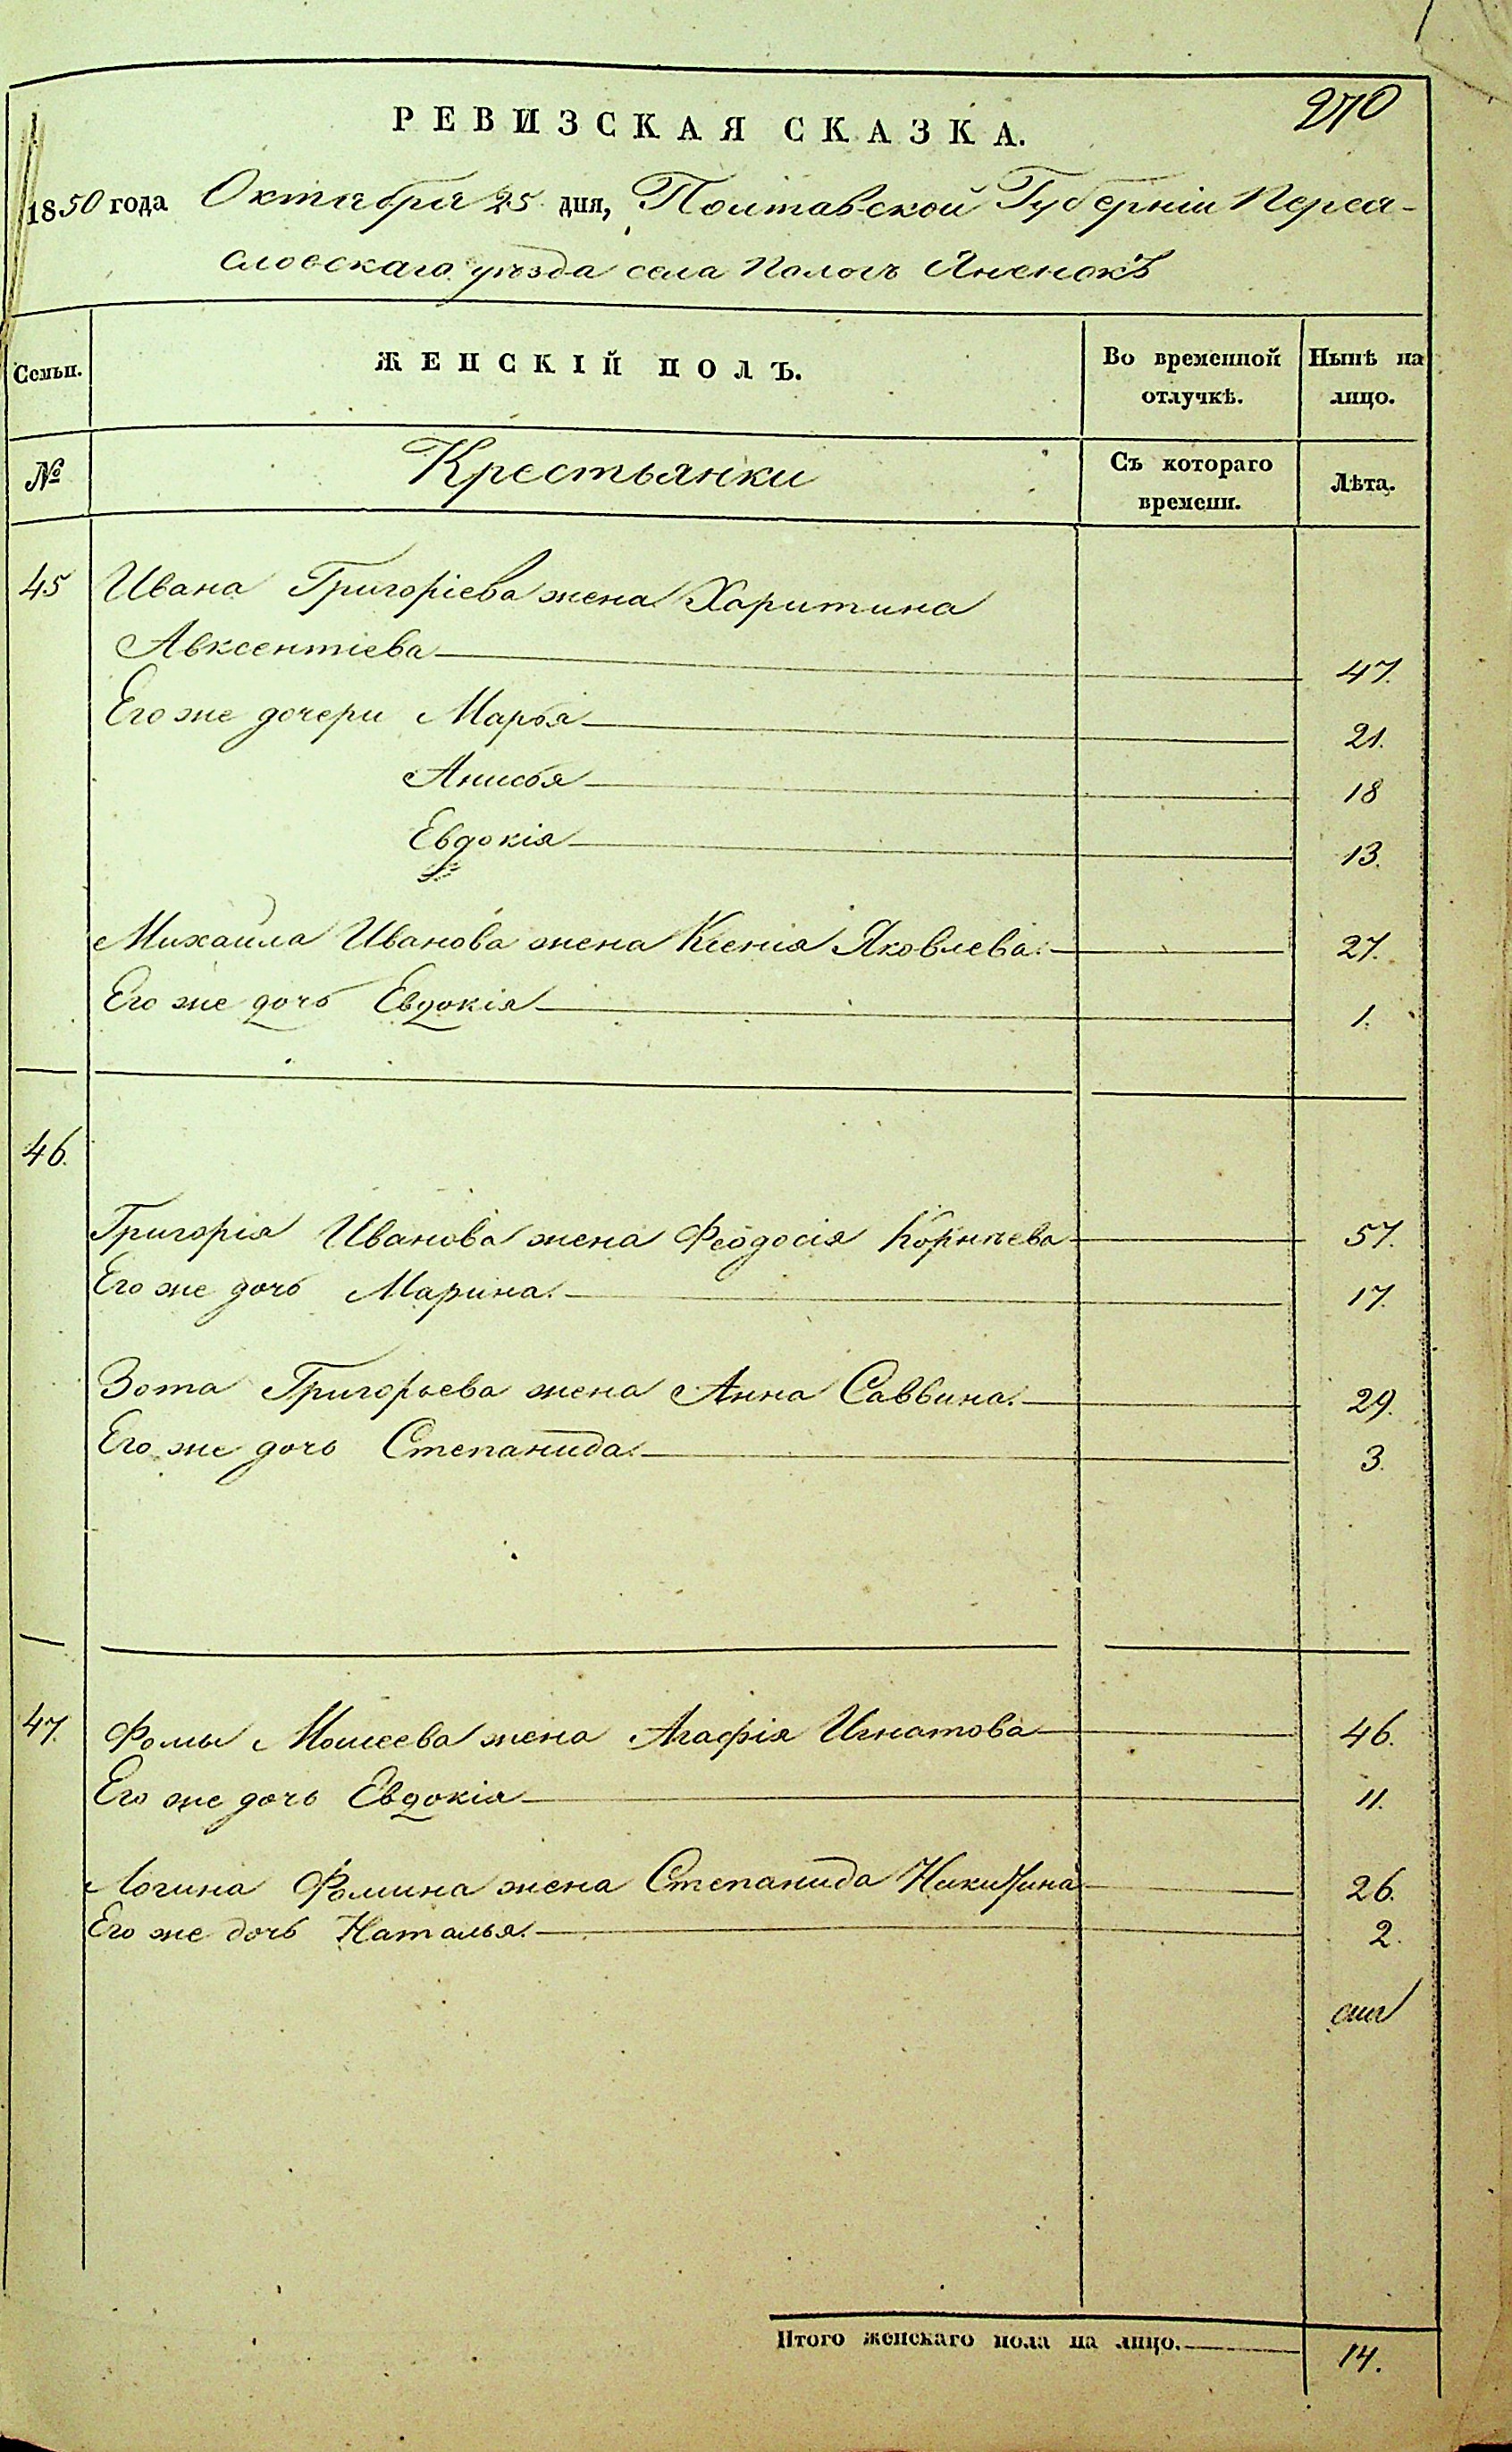 270
РЕВИЗСКАЯ СКАЗКА.
1850 года Октября 25 дня, Полтавской Губерніи Перея-
словскаго уѣзда села Пологъ Яненокъ
Семьи. ЖЕНСКІЙ ПОЛЪ. Во временной отлучкѣ. Нынѣ на лицо.
№ Крестьянки Съ котораго времени. Лѣта.
45 Ивана Григоріева жена Харитина
Авксентіева 47.
Его же дочери Марья 21.
Анисья 18
Евдокія 13.
Михаила Иванова жена Ксенія Яковлева. 27.
Его же дочь Евдокія 1.
46.
Григорія Иванова жена Феодосія Корнѣева 57.
Его же дочь Марина. 17.
Зота Григорьева жена Анна Саввина. 29.
Его же дочь Степанида. 3.
47. Фомы Моисеева жена Агафія Игнатова 46.
Его же дочь Евдокія 11.
Логина Фомина жена Степанида Никитина 26.
Его же дочь Наталья. 2.
Итого женскаго пола на лицо. 14.